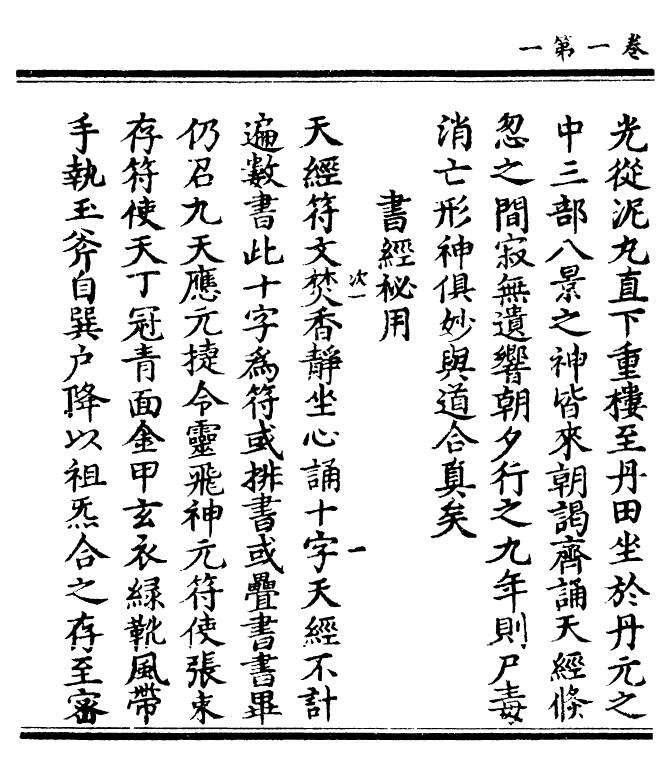 卷一第一
光從泥丸直下重樓至丹田坐於丹元之
中三部八景之神皆來朝謁齊誦天經倐
忽之間寂無遺響朝夕行之九年則尸毒
消亡形神俱妙與道合真矣
書經秘用
次一
天經符文焚香靜坐心誦十字天經不計
一
遍數書此十字為符或排書或疊書書畢
仍召九天應元捷令靈飛神元符使張束
存符使天丁冠青面金甲玄衣綠靴風帶
手執玉斧自巽户降以祖炁合之存至審